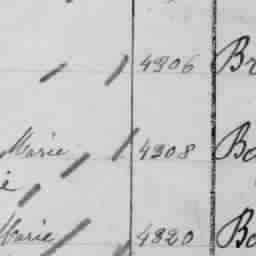 4306 Br
Marie 4308 Bo
ie
Marie 4320 Bo